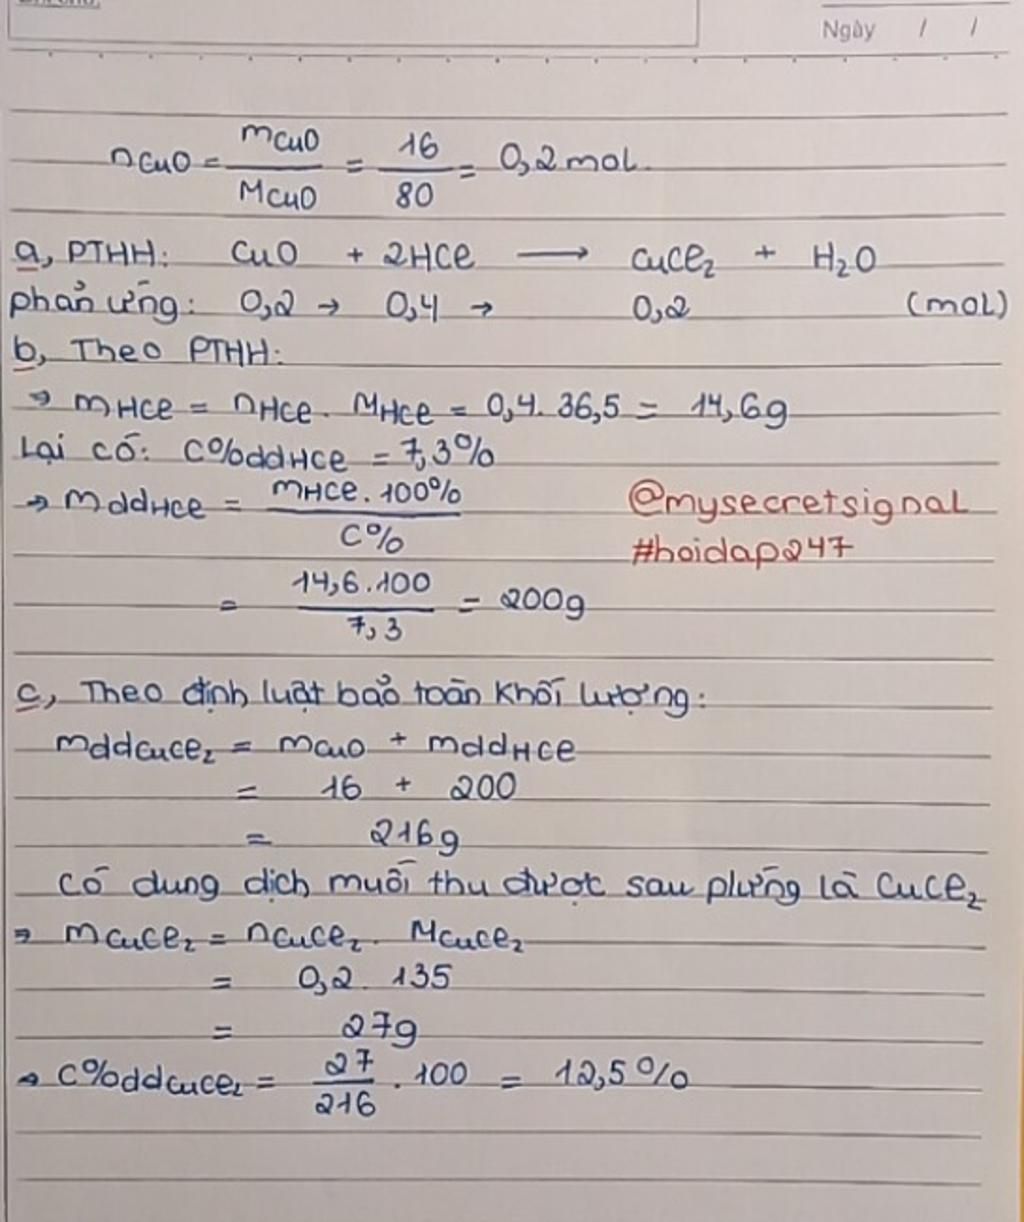 Ngày / /
nCuO = mCuO / MCuO = 16 / 80 = 0,2 mol.
a, PTHH: CuO + 2HCl ⟶ CuCl₂ + H₂O
phản ứng: 0,2 → 0,4 → 0,2 (mol)
b, Theo PTHH:
⇒ mHCl = nHCl. MHCl = 0,4. 36,5 = 14,6g
Lại có: C%ddHCl = 7,3%
⇒ mddHCl = mHCl. 100% / C%
@mysecretsignal
#hoidap247
= 14,6.100 / 7,3 = 200g
c, Theo định luật bảo toàn khối lượng:
mddCuCl₂ = mCuO + mddHCl
= 16 + 200
= 216g
Có dung dịch muối thu được sau pứng là CuCl₂
⇒ mCuCl₂ = nCuCl₂. MCuCl₂
= 0,2. 135
= 27g
⇒ C%ddCuCl₂ = 27 / 216 . 100 = 12,5%